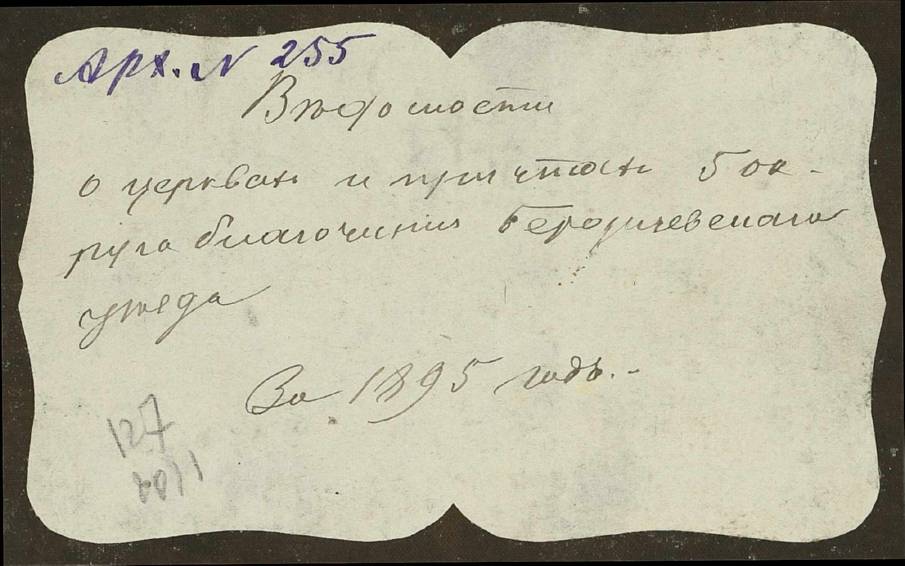 Арх. N 255
Вѣдомости
о церквах и причтах 5 ок-
руга благочиния Бердичевскаго
уѣзда
За 1895 годъ.-
127